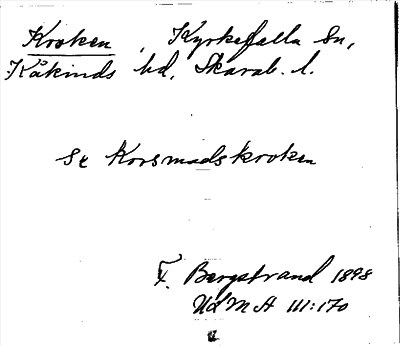 Kroken, Kyrkefalla Sn,
Kåkinds hd, Skarab. l.
Se Korsmadskroken
F. Bergstrand 1898
UdMA III:170